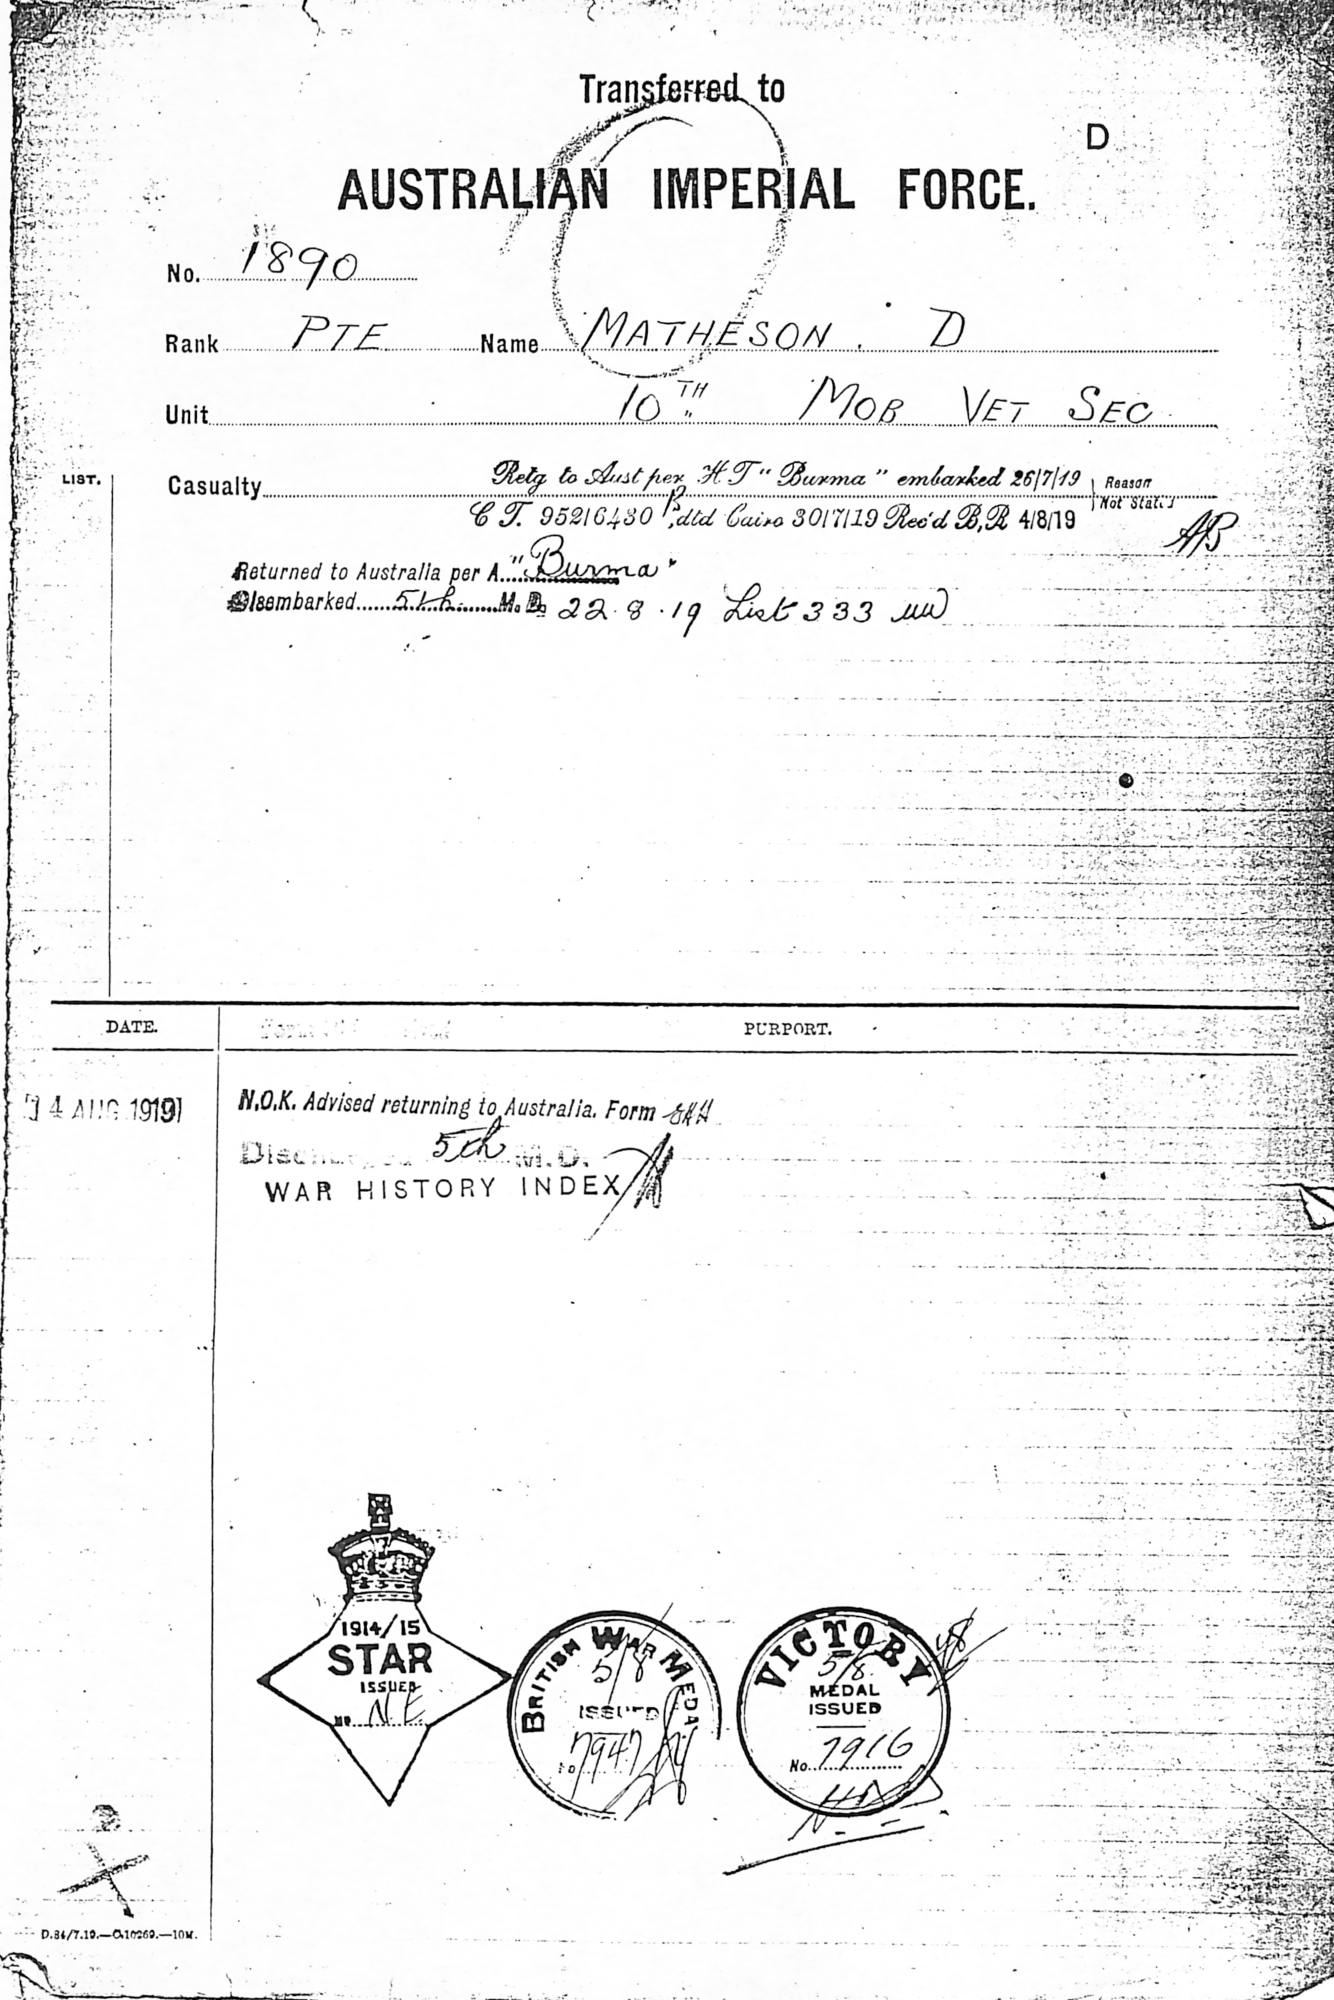 Transferred to
D
AUSTRALIAN IMPERIAL FORCE.
No. 1890
Rank PTE Name MATHESON. D
Unit 10TH MOB VET SEC
LIST.
Casualty Retg to Aust per H.T "Burma" embarked 26/7/19 Reason Not Stated
C T. 95216430 dtd Cairo 30/7/19 Rec'd B.R 4/8/19
Returned to Australia per A. "Burma"
Disembarked 5th M.D. 22.8.19 List 333
DATE. PURPORT.
4 AUG 1919 N.O.K. Advised returning to Australia. Form
Discharged 5th M.D.
WAR HISTORY INDEX
1914/15
STAR
ISSUED
NO N.E
BRITISH WAR MEDAL
5/8
ISSUED
No 7947
VICTORY
5/8
MEDAL
ISSUED
No. 7916
D.84/7.19.—C.10269.—10M.